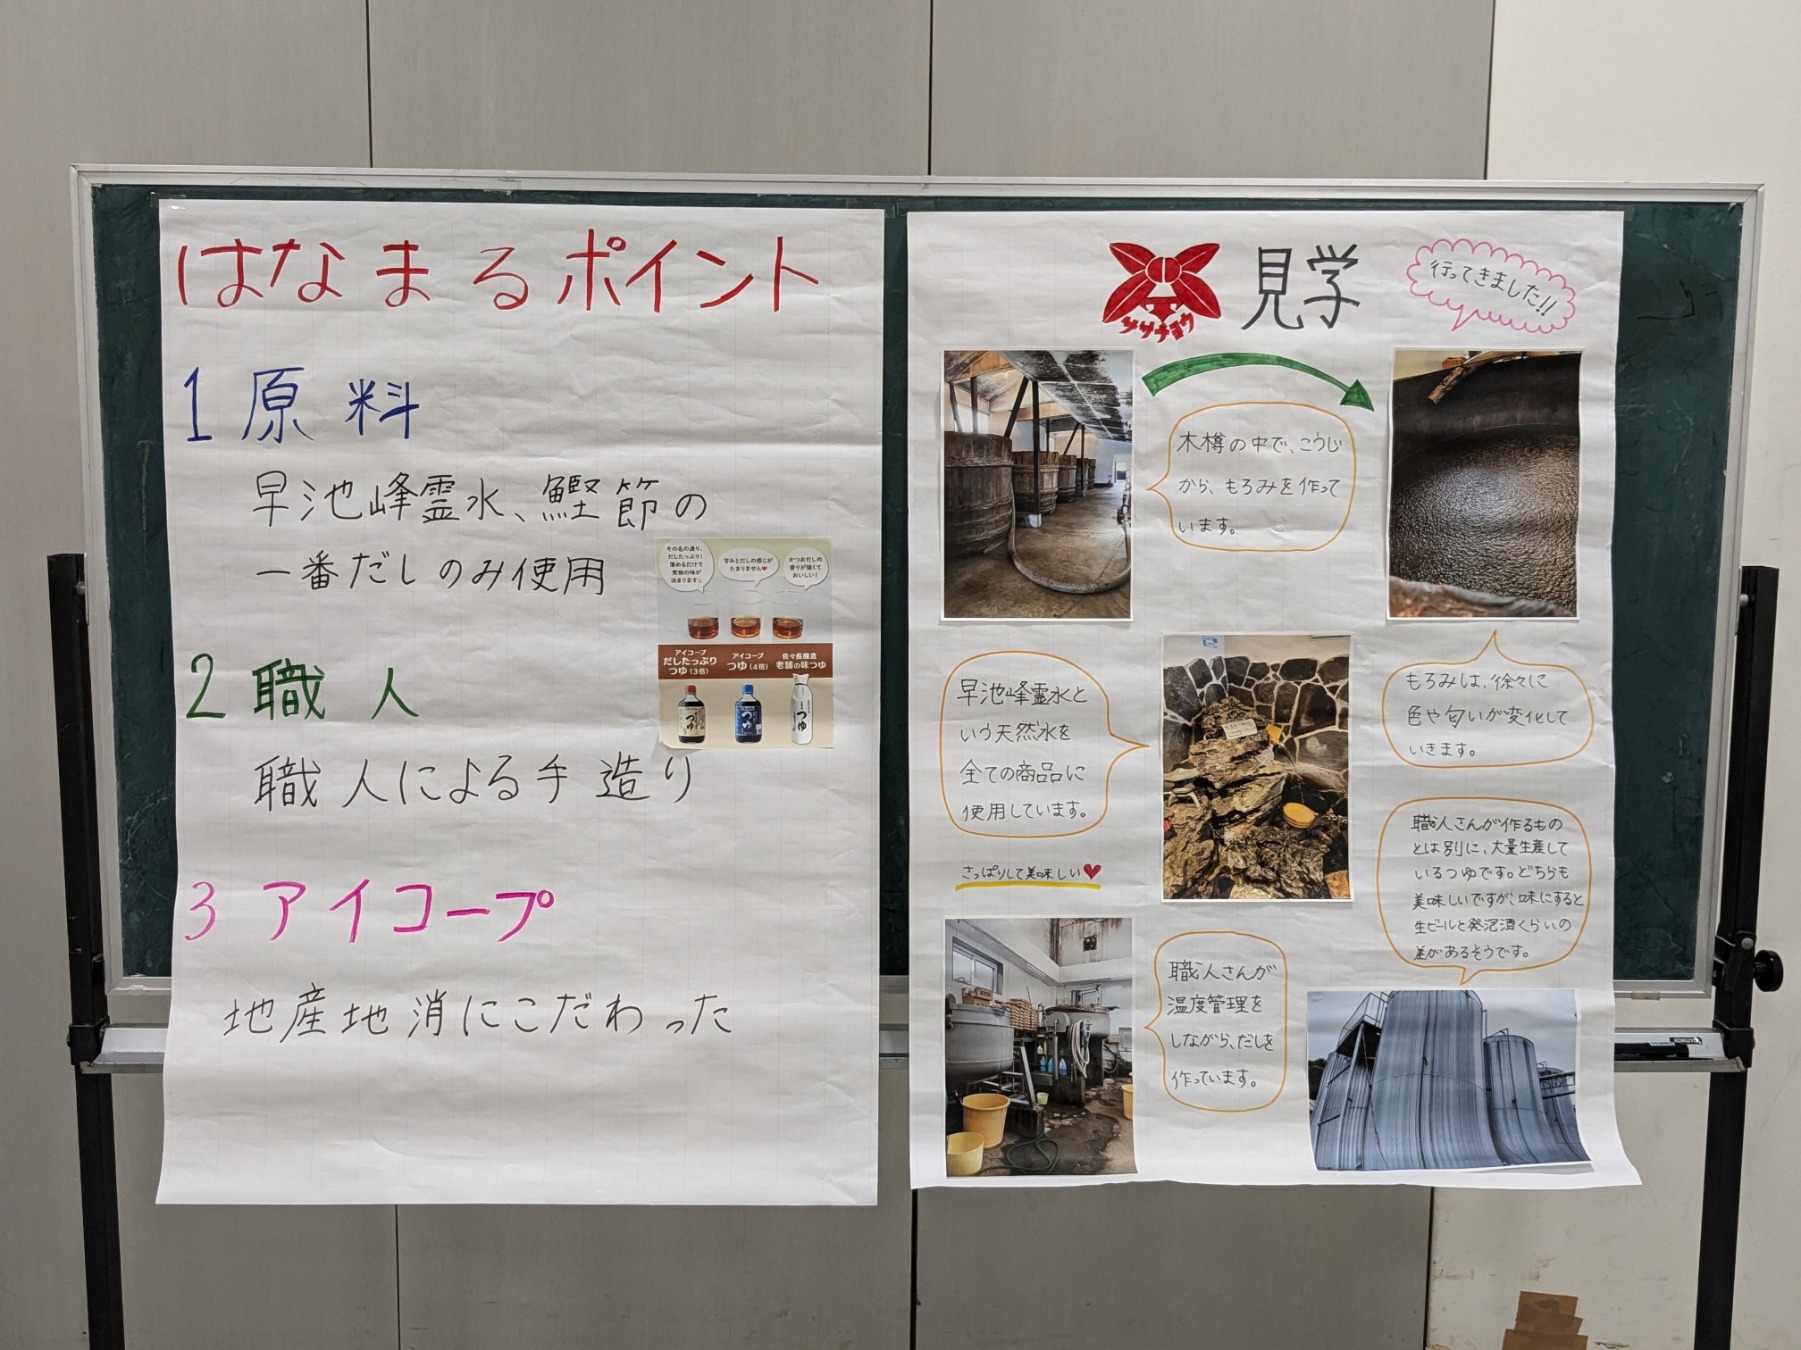 はなまるポイント
1 原料
早池峰霊水、鰹節の
一番だしのみ使用
その名の通り、
だしたっぷり!
薄めるだけで
煮物の味が
決まります
甘みとだしの感じが
たまりません♥
かつおだしの
香りが強くて
おいしい!
アイコープ
だしたっぷり
つゆ(3倍)
アイコープ
つゆ(4倍)
佐々長醸造
老舗の味つゆ
つゆ
つゆ
2 職人
職人による手造り
3 アイコープ
地産地消にこだわった
ササチョウ
見学
行ってきました!!
木樽の中で、こうじ
から、もろみを作って
います。
もろみは、徐々に
色や匂いが変化して
いきます。
早池峰霊水と
いう天然水を
全ての商品に
使用しています。
さっぱりして美味しい♥
職人さんが作るもの
とは別に、大量生産して
いるつゆです。どちらも
美味しいですが、味にすると
生ビールと発泡酒くらいの
差があるそうです。
職人さんが
温度管理を
しながら、だしを
作っています。